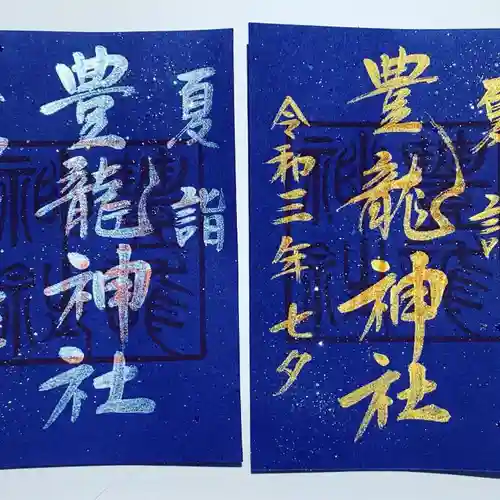 夏詣
豊龍神社
夏詣
豊龍神社
令和三年 七夕